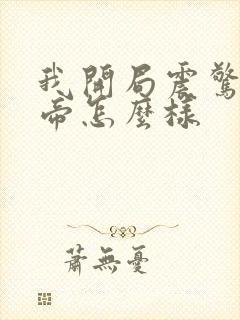 我開局震驚
帝怎麼樣
蕭無憂